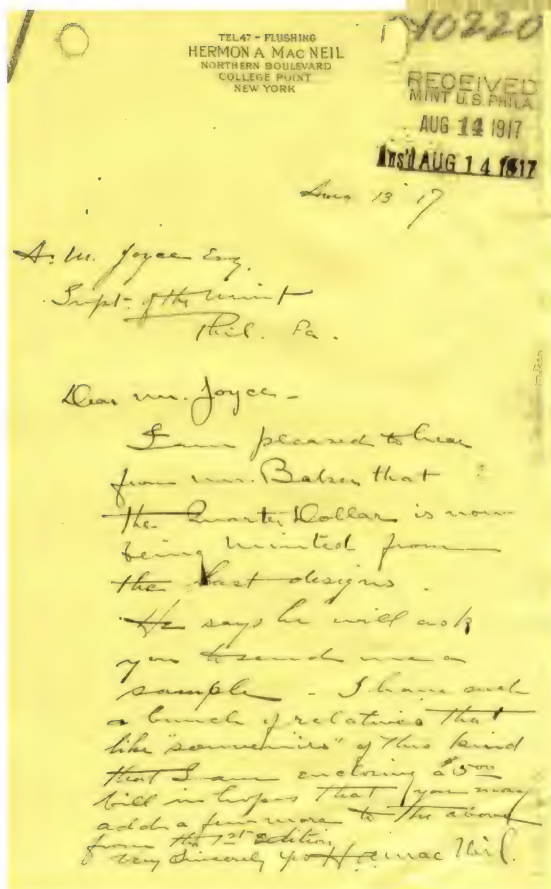 40220
TEL 47 - FLUSHING
HERMON A MAC NEIL
NORTHERN BOULEVARD
COLLEGE POINT
NEW YORK
RECEIVED
MINT U.S. PHILA.
AUG 14 1917
Ans'd AUG 14 1917
Aug 13 '17
A. M. Joyce Esq.
Supt. of the Mint
Phil. Pa.
Dear Mr. Joyce -
I am pleased to hear
from Mr. Baker that
the Quarter Dollar is now
being minted from
the last designs.
He says he will ask
you to send me a
sample - I have such
a bunch of relatives that
like "souvenirs" of this kind
that I am enclosing a $5.00
bill in hopes that you may
add a few more to the above
from the 1st edition
Very Sincerely yrs H A MacNeil.